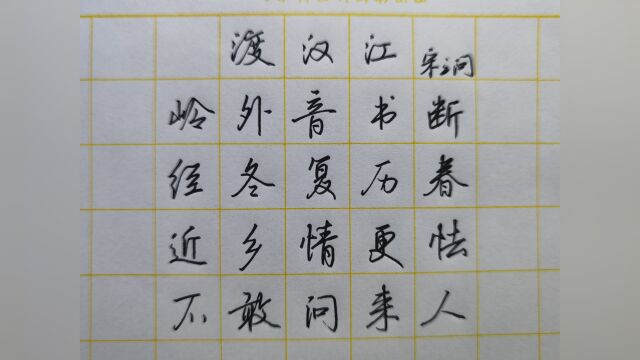 渡汉江 宋之问
岭外音书断
经冬复历春
近乡情更怯
不敢问来人